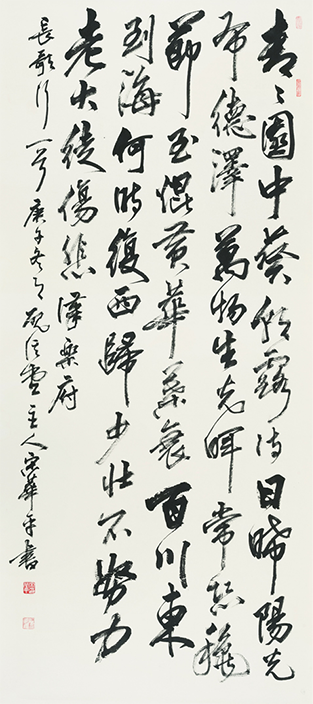 青々園中葵朝露待日晞陽光
布德澤萬物生光暉常恐穐
節至焜黃華葉衰百川東
到海何時復西歸少壯不努力
老大徒傷悲漢樂府
長歌行一首庚子冬月主人宋華平書